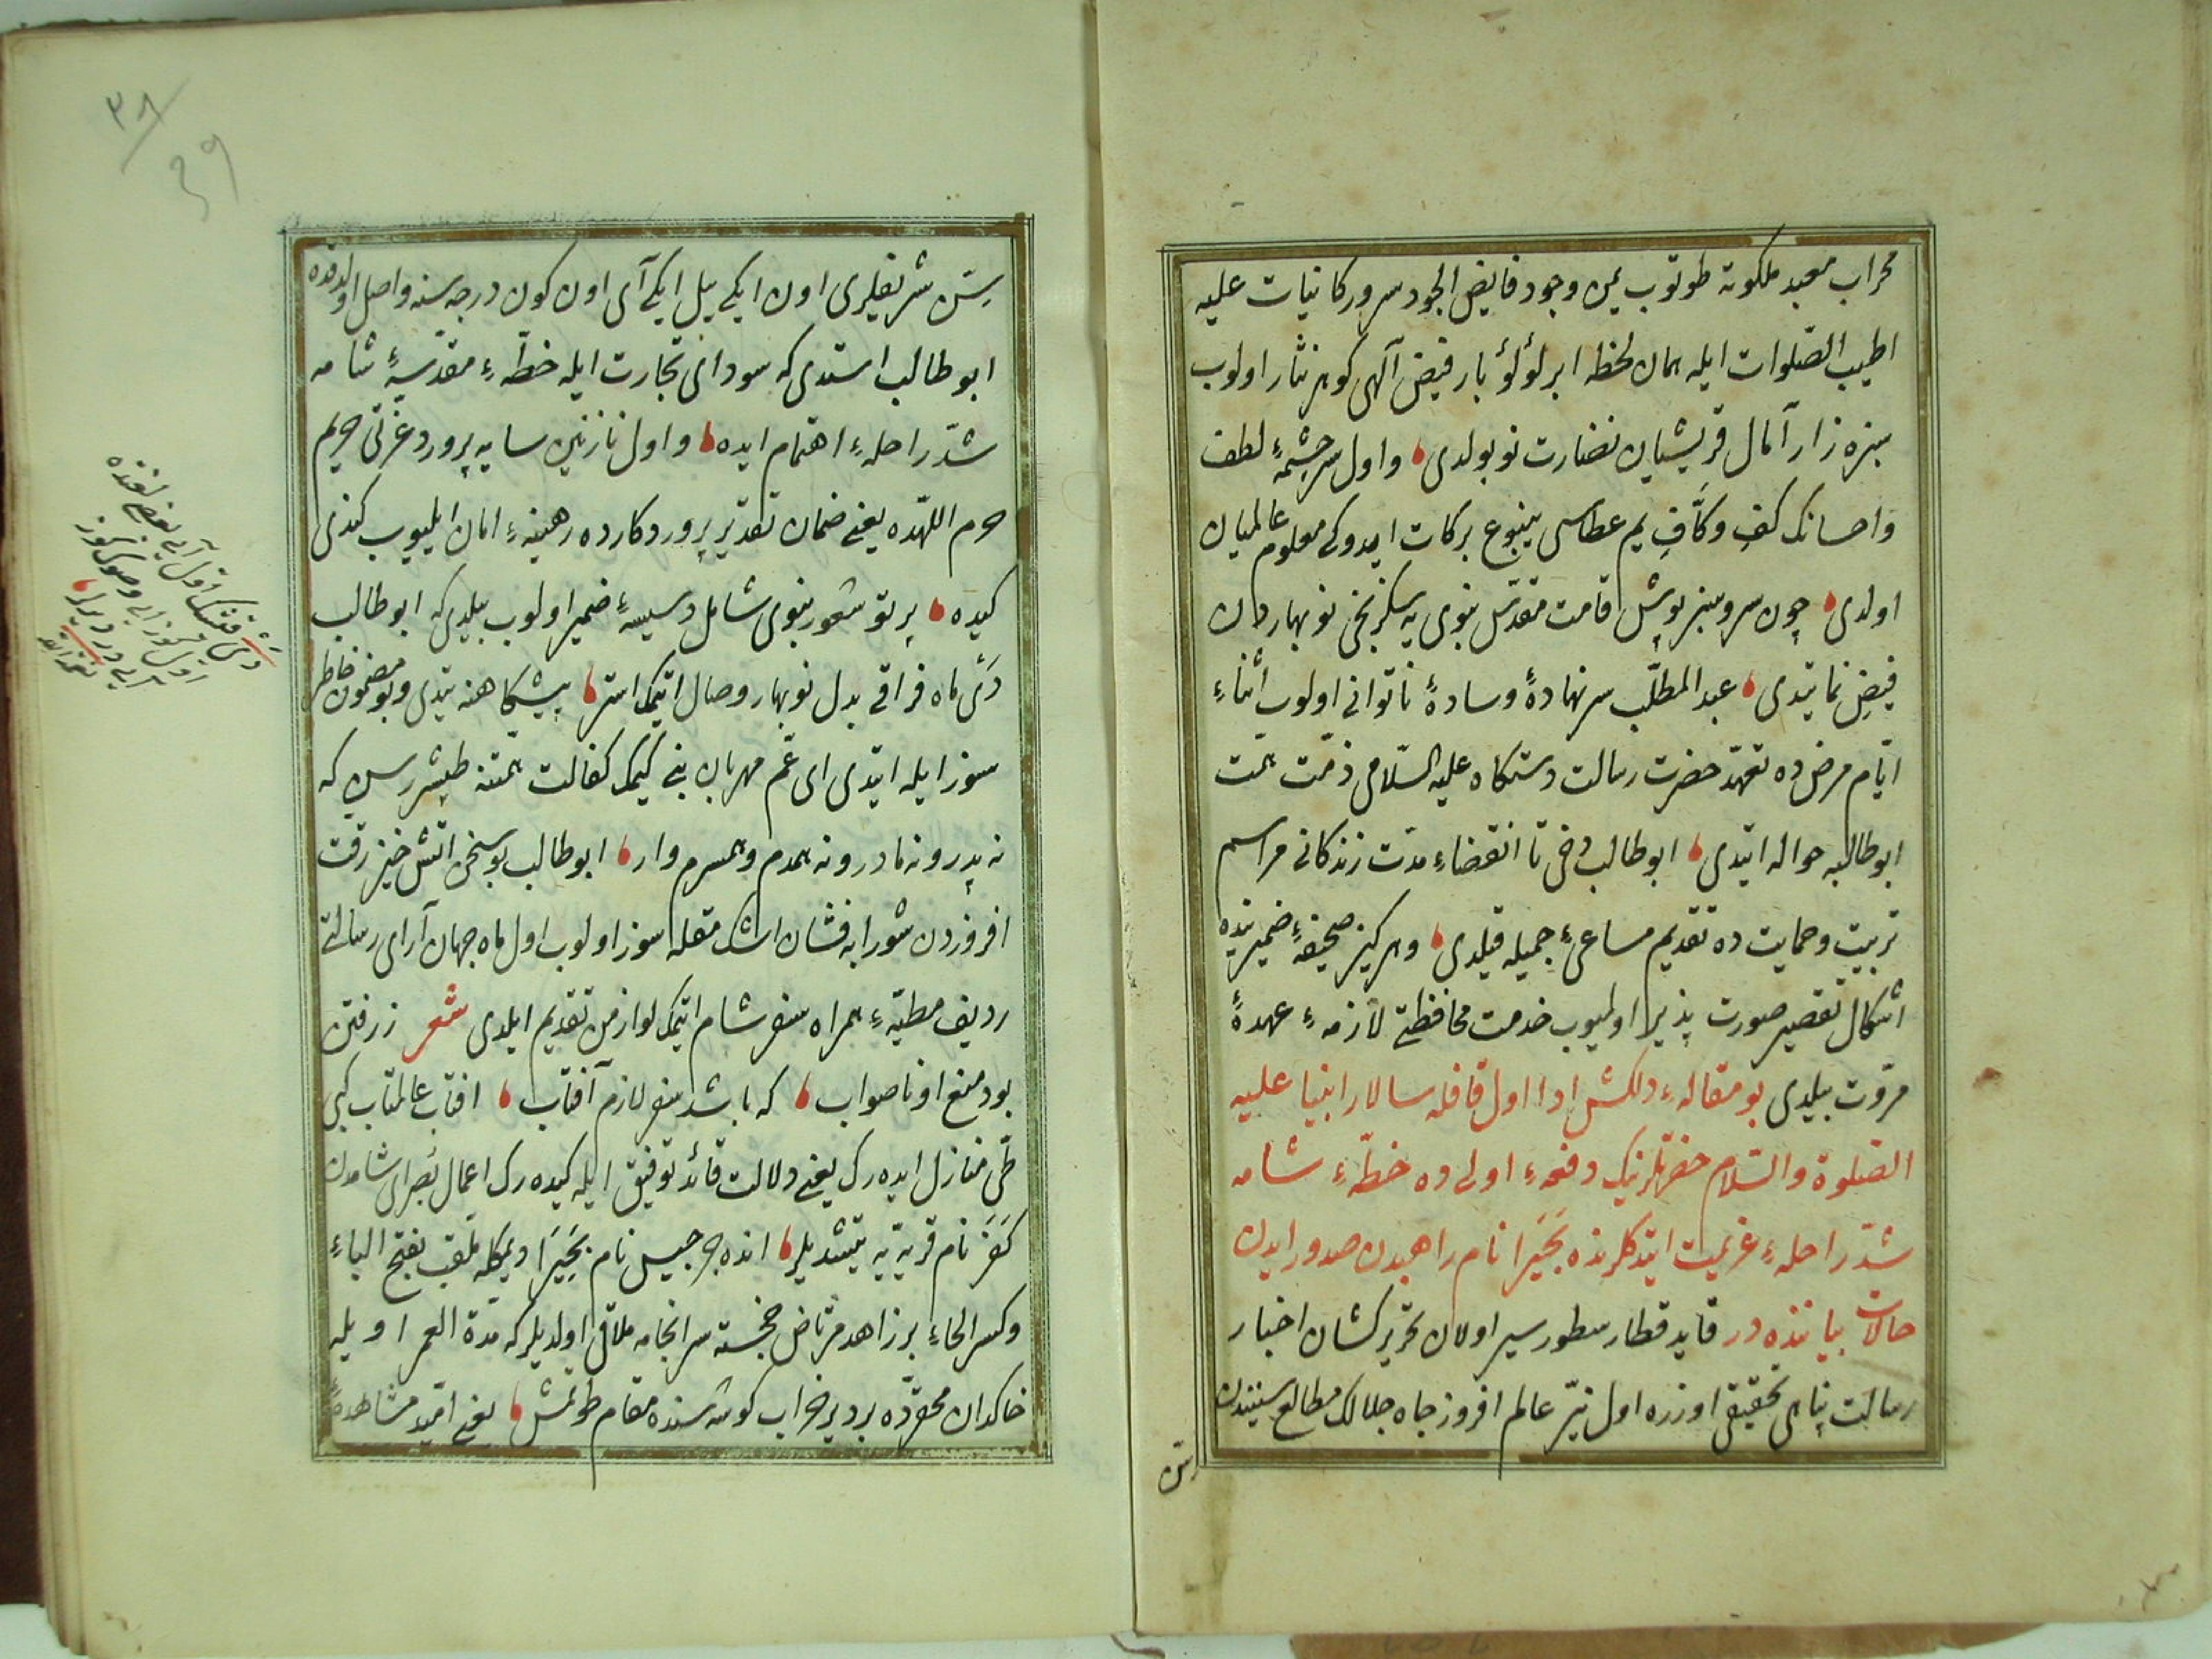 محراب معبد ملكوته طوتوب يمن وجود فايض الجود سرور كاينات عليه
اطيب الصلوات ايله همان لحظه ابر لؤلؤ بار فيض آلهى كوهر نثار اولوب
سبزه زار آمال قريشيان نضارت نو بولدى واول سرچشمهٔ لطف
واحسانك كف وكافِ يم عطاسى ينبوع بركات ايدوكى معلوم عالميان
اولدى چون سرو سبز پوش قامت مقدّس نبوى يه سكزنجى نوبهاردن
فيض نما يتدى عبد المطّلب سر نهادهٔ وسادهٔ ناتوانى اولوب أثناءِ
ايّام مرض ده تعهّد حضرت رسالت دستكاه عليه السّلامى ذمّت همّت
ابوطالبه حواله ايتدى ابوطالب دخى تا انقضاءِ مدّت زندكانى مراسم
تربيت وحمايت ده تقديم مساعىءِ جميله قيلدى وهركيز صحيفهٔ ضميرينده
اشكال تقصير صورت پذير اولميوب خدمت محافظتى لازمهءِ عهدهٔ
مروّت بيلدى بو مقالهءِ دلكش ادا اول قافله سالار انبيا عليه
الصلوة والسّلام حضرتلرينك دفعهءِ اولى ده خطّهءِ شامه
شدّ راحلهءِ عزيمت ايتدكلرنده بَحَيرا نام راهبدن صدور ايدن
حالات بياننده در قايد قطار سطور سير اولان تحرير كشان اخبار
رسالت پناهى تحقيقى اوزره اول نيّر عالم افروز جاه جلالك مطالع سنيندن
سنّ
سِنّ شريفلرى اون ايكى ييل ايكى آى اون كون درجه سنه واصل اولدقده
ابو طالب استدى كه سوداى تجارت ايله خطّهءِ مقدّسهٔ شامه
شدّ راحلهءِ اهتمام ايده واول نازنين سايه پرورد عزتى حريم
حرم اللهده يعنى ضمان تقدير پروردكارده رهينهءِ امان ايليوب كندى
كيده پرتو شعور نبوى شامل دسيسهٔ ضمير اولوب بيلدى كه ابو طالب
دَىْ ماه فراقى بدل نوبهار وصال ايتمك استر پيشكاهنه يتدى وبو مضمون خاطر
سوز ايله ايتدى اى عمّ مهربان بنى كيمك كفالت همّتنه طپشررسن كه
نه پدر ونه مادر ونه همدم وهمسرم وار ابو طالب بو سخن اتش خيز رقت
افروزدن شورابه فشان اشك مقله سوز اولوب اول ماه جهان آراى رسالتى
رديف مطيّهءِ همراه سفر شام ايتمك لوازمن تقديم ايلدى شعر ز رفتن
بود منع او ناصواب كه باشد سفر لازم آفتاب افتاب عالمتاب كبى
طىّ منازل ايده رك يعنى دلالت قائد توفيق ايله كيده رك اعمال بُصراى شامدن
كَفَر نام قريه يه يتشديلر انده جرجيس نام بَحِيَرا ديمكله ملقب بفتح الباءِ
وكسر الحاءِ بر زاهد مرتاض خجسته سرانجامه ملاقى اولديلر كه مدّة العمر اويله
خاكدان محقّرده بر دير خراب كوشه سنده مقام طوتمش يعنى امّيد مشاهدهٔ